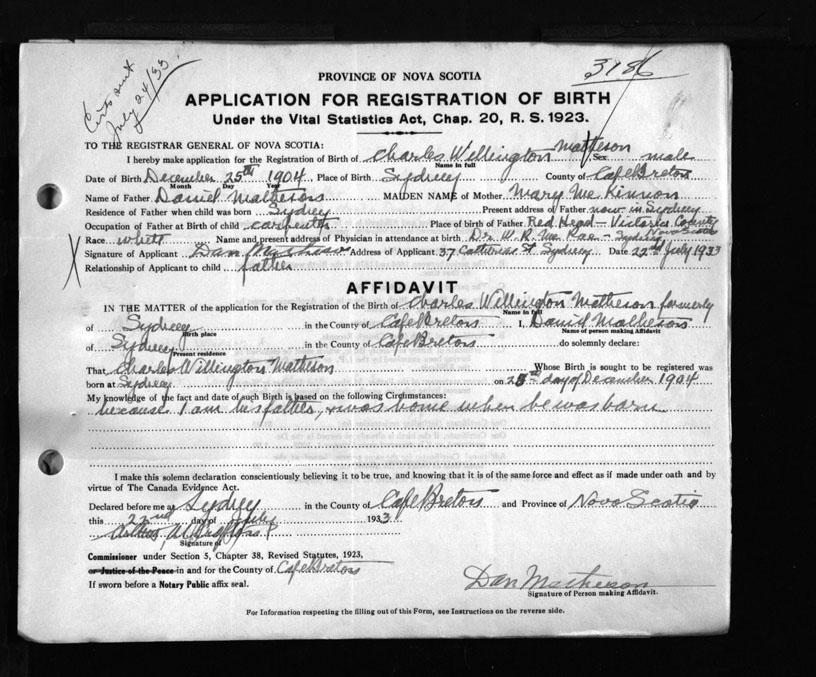 Certs sent
July 24/33
3186
PROVINCE OF NOVA SCOTIA
APPLICATION FOR REGISTRATION OF BIRTH
Under the Vital Statistics Act, Chap. 20, R. S. 1923.
TO THE REGISTRAR GENERAL OF NOVA SCOTIA:
I hereby make application for the Registration of Birth of Charles Wellington Matheson Sex male
Name in full
Date of Birth December 25th 1904 Place of Birth Sydney County of Cape Breton
Month Day Year
Name of Father Daniel Matheson MAIDEN NAME of Mother Mary Mc Kinnon
Residence of Father when child was born Sydney Present address of Father now in Sydney
Occupation of Father at Birth of child carpenter Place of birth of Father Red Head - Victoria County Nova Scotia
Race white Name and present address of Physician in attendance at birth Dr. W. R. Mc Rae - Sydney
Signature of Applicant Dan Matheson Address of Applicant 37 St Sydney Date 22nd July 1933
Relationship of Applicant to child father
AFFIDAVIT
IN THE MATTER of the application for the Registration of the Birth of Charles Wellington Matheson formerly
Name in full
of Sydney in the County of Cape Breton I, Daniel Matheson
Birth place Name of person making Affidavit
of Sydney in the County of Cape Breton do solemnly declare:
Present residence
That Charles Wellington Matheson Whose Birth is sought to be registered was
born at Sydney on 25th day of December 1904
My knowledge of the fact and date of such Birth is based on the following Circumstances:
because I am his father, & was home when he was born
I make this solemn declaration conscientiously believing it to be true, and knowing that it is of the same force and effect as if made under oath and by
virtue of The Canada Evidence Act.
Declared before me at Sydney in the County of Cape Breton and Province of Nova Scotia
this 22nd day of July 1933
Signature of
Commissioner under Section 5, Chapter 38, Revised Statutes, 1923,
or Justice of the Peace in and for the County of Cape Breton
If sworn before a Notary Public affix seal.
Dan Matheson
Signature of Person making Affidavit.
For Information respecting the filling out of this Form, see Instructions on the reverse side.